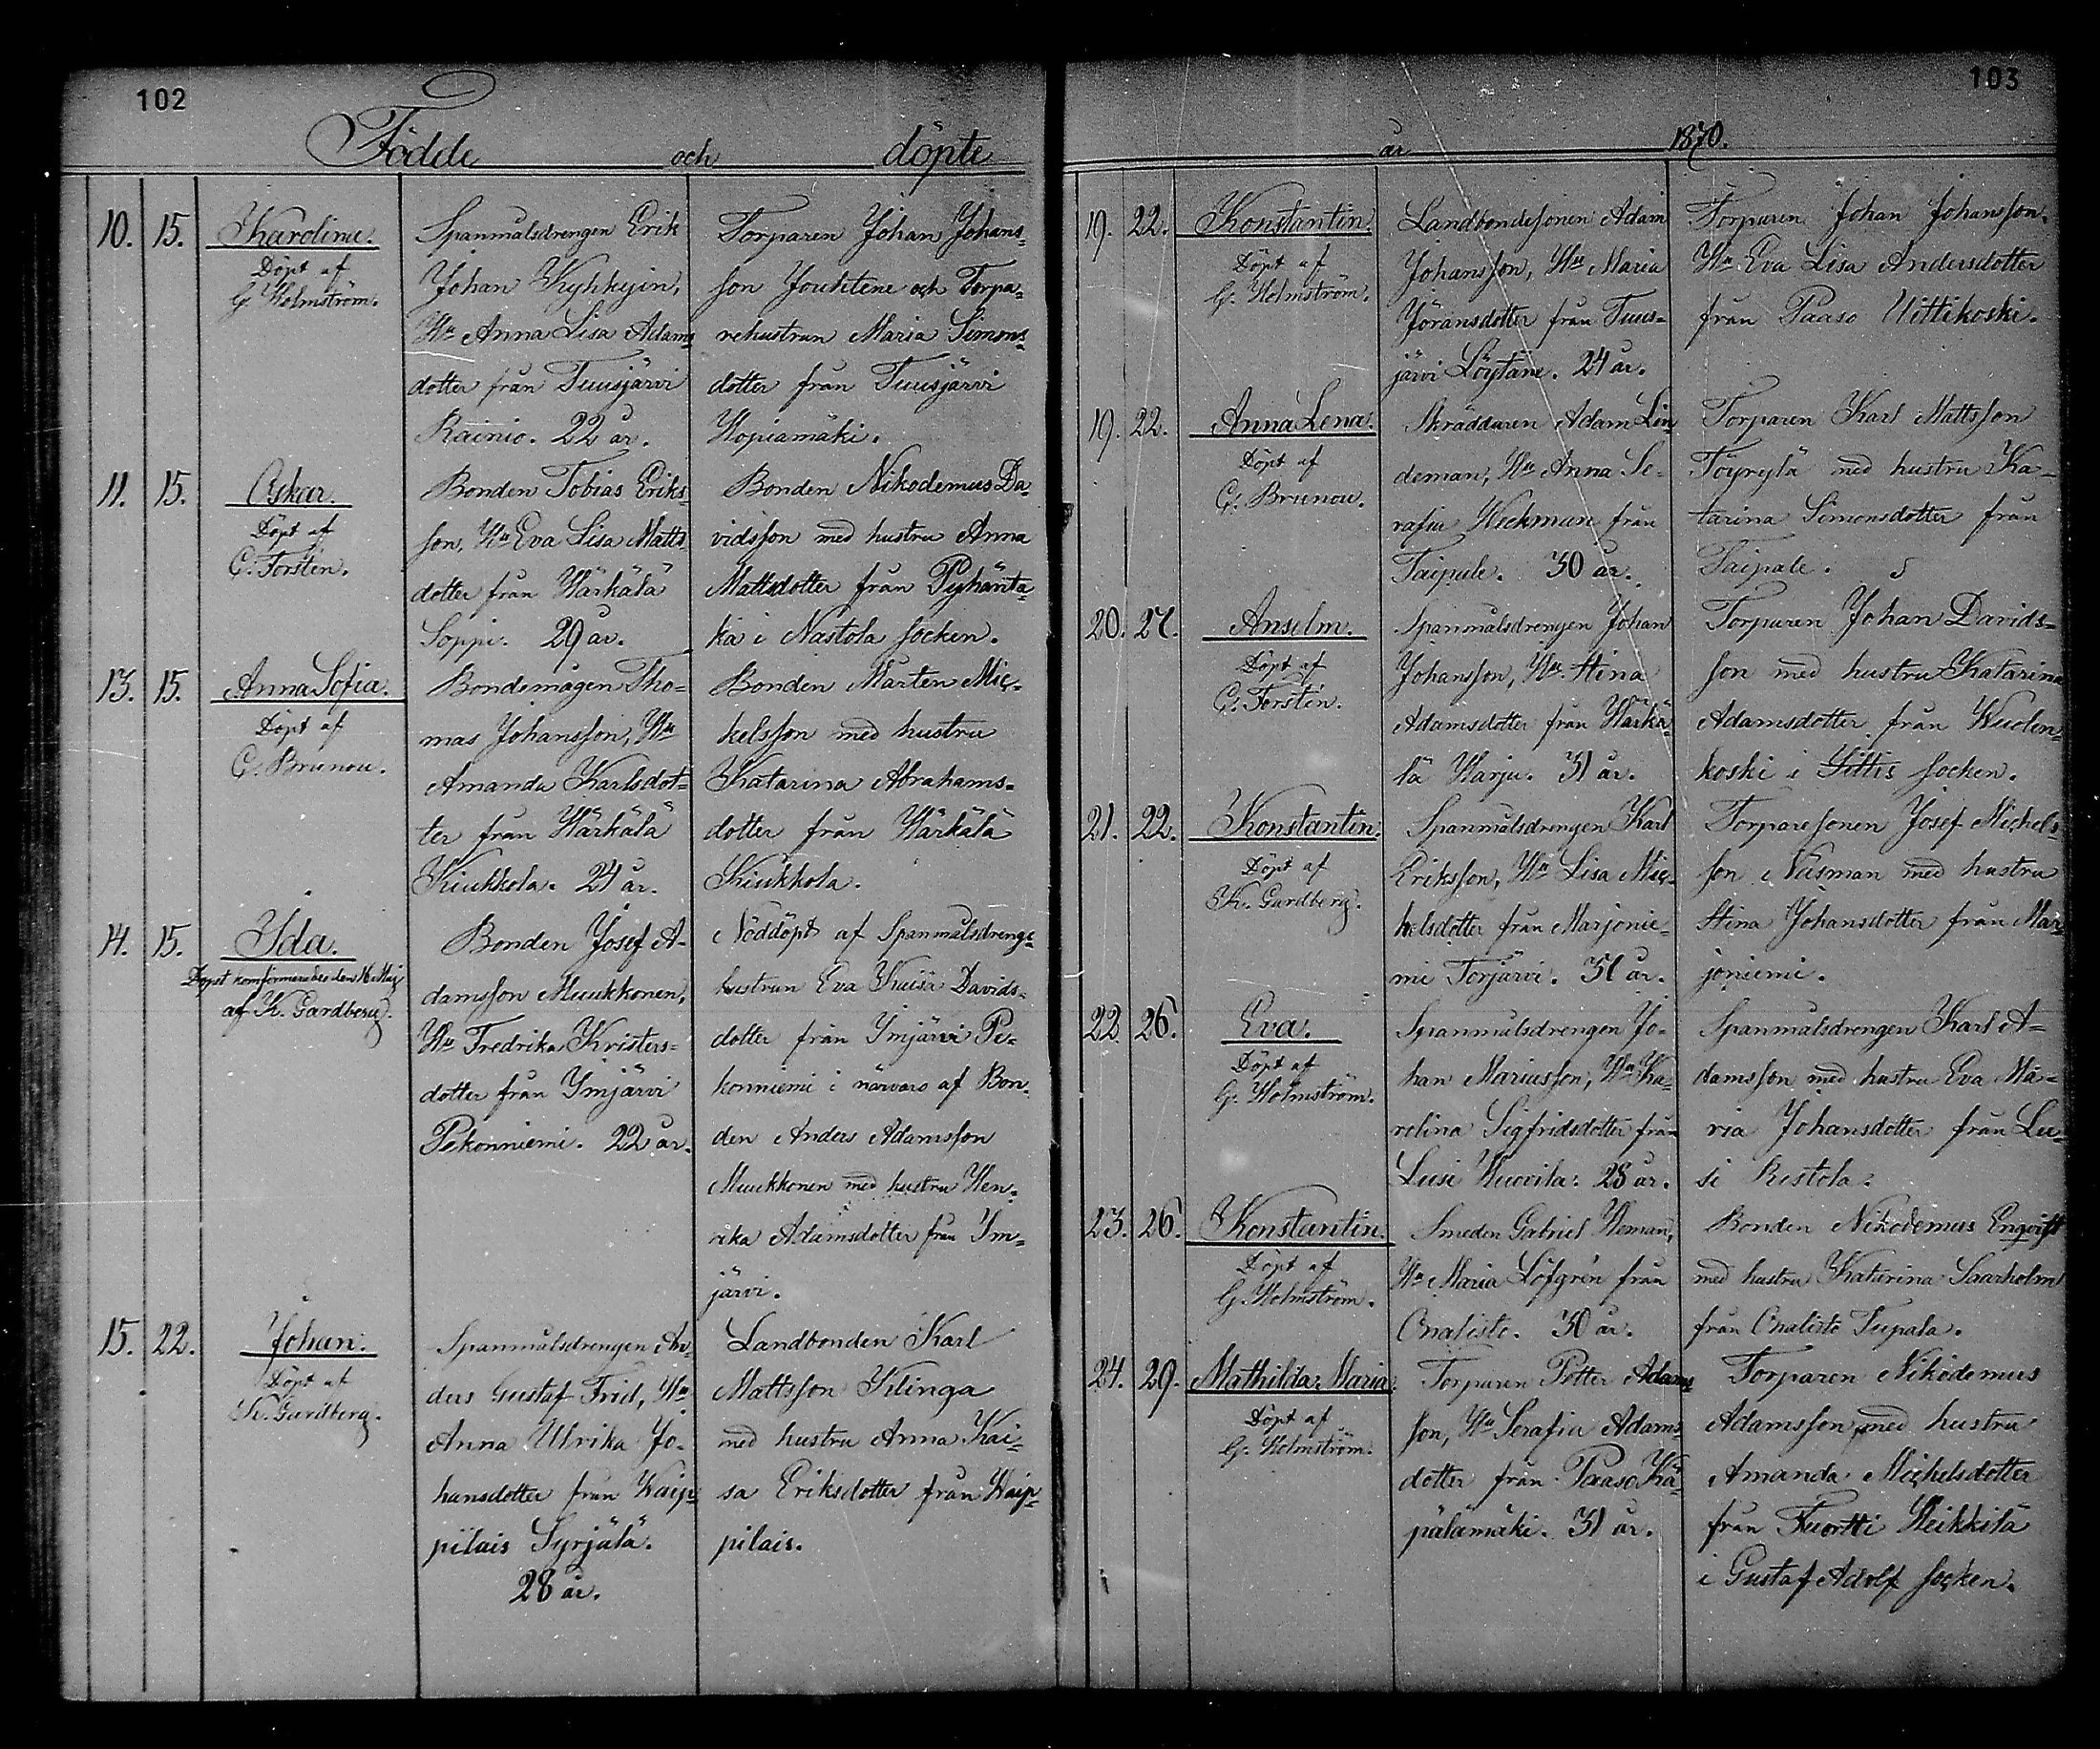 102
Födde och döpte
10. 15. Karolina.
Döpt af
G. Holmström.
Spanmålsdrengen Erik
Johan Kyhkyin,
Hu Anna Lisa Adams
dotter från Tuusjärvi
Rainio. 22 år.
Torparen Johan Johans-
son Joutitene och Torpa-
rehustrun Maria Simons-
dotter från Tuusjärvi
Hopiamäki.
11. 15. Oskar.
Döpt af
C. Forstén.
Bonden Tobias Eriks-
son, Hu Eva Lisa Matts
dotter från Härkälä
Soppi. 29 år.
Bonden Nikodemus Da-
vidsson med hustru Anna
Mattsdotter från Pyhänta-
ka i Nastola socken.
13. 15. Anna Sofia.
Döpt af
C. Brunou.
Bondemågen Tho-
mas Johansson, Hu
Amanda Karlsdot-
ter från Härkälä
Kiukkola. 24 år.
Bonden Mårten Mic-
kelsson med hustru
Katarina Abrahams-
dotter från Härkälä
Kiukkola.
14. 15. Ida.
Döpet konfirmerades den 16 Maij
af K. Gardberg.
Bonden Josef A-
damsson Muukkonen,
Hu Fredrika Kristers-
dotter från Ymjärvi
Pekonniemi. 22 år.
Nöddöpt af Spanmålsdrenge-
hustrun Eva Kaisa Davids-
dotter från Ymjärvi Pe-
konniemi i närvaro af Bon-
den Anders Adamsson
Muukkonen med hustru Hen-
rika Adamsdotter från Ym-
järvi.
15. 22. Johan.
Döpt af
K. Gardberg.
Spanmålsdrengen An-
ders Gustaf Frid, Hu
Anna Ulrika Jo-
hansdotter från Waip-
pilais Syrjälä.
28 år.
Landbonden Karl
Mattsson Klinga
med hustru Anna Kai-
sa Eriksdotter från Waip-
pilais.
103
år 1870.
19. 22. Konstantin.
Döpt af
G. Holmström.
Landbondesonen Adam
Johansson, Hu Maria
Jöransdotter från Tuus-
järvi Löytäne. 24 år.
Torparen Johan Johansson.
Hu Eva Lisa Andersdotter
från Paaso Uittikoski.
19. 22. Anna Lena.
Döpt af
C. Brunou.
Skräddaren Adam Lin
deman, Hu Anna Se-
rafia Heckman från
Taipale. 30 år.
Torparen Karl Mattsson
Töyrylä med hustru Ka-
tarina Simonsdotter från
Taipale.
20. 27. Anselm.
Döpt af
C. Forstén.
Spanmålsdrengen Johan
Johansson, Hu Stina
Adamsdotter från Härkä-
lä Harju. 31 år.
Torparen Johan Davids-
son med hustru Katarina
Adamsdotter från Wuolen-
koski i Jittis socken.
21. 22. Konstantin.
Döpt af
K. Gardberg.
Spanmålsdrengen Karl
Eriksson, Hu Lisa Mic-
helsdotter från Marjonie-
mi Torjärvi. 31 år.
Torparesonen Josef Michels-
son Näsman med hustru
Stina Johansdotter från Mar-
joniemi.
22. 26. Eva.
Döpt af
G. Holmström.
Spanmålsdrengen Jo-
han Mariusson, Hu Ka-
rolina Sigfridsdotter från
Lusi Huovila. 28 år.
Spanmålsdrengen Karl A-
damsson med hustru Eva Ma-
ria Johansdotter från Lu-
si Ristola.
23. 26. Konstantin.
Döpt af
G. Holmström.
Smeden Gabriel Heman,
Hu Maria Löfgrén från
Onaliste. 30 år.
Bonden Nikodemus Engvist
med hustru Katarina Saarholm
från Onaliste Tupala.
24. 29. Mathilda Maria.
Döpt af
G. Holmström.
Torparen Petter Adams
son, Hu Serafia Adams-
dotter från Paaso Kä-
pälämäki. 31 år.
Torparen Nikodemus
Adamsson, med hustru
Amanda Michelsdotter
från Tuortti Heikkilä
i Gustaf Adolf socken.